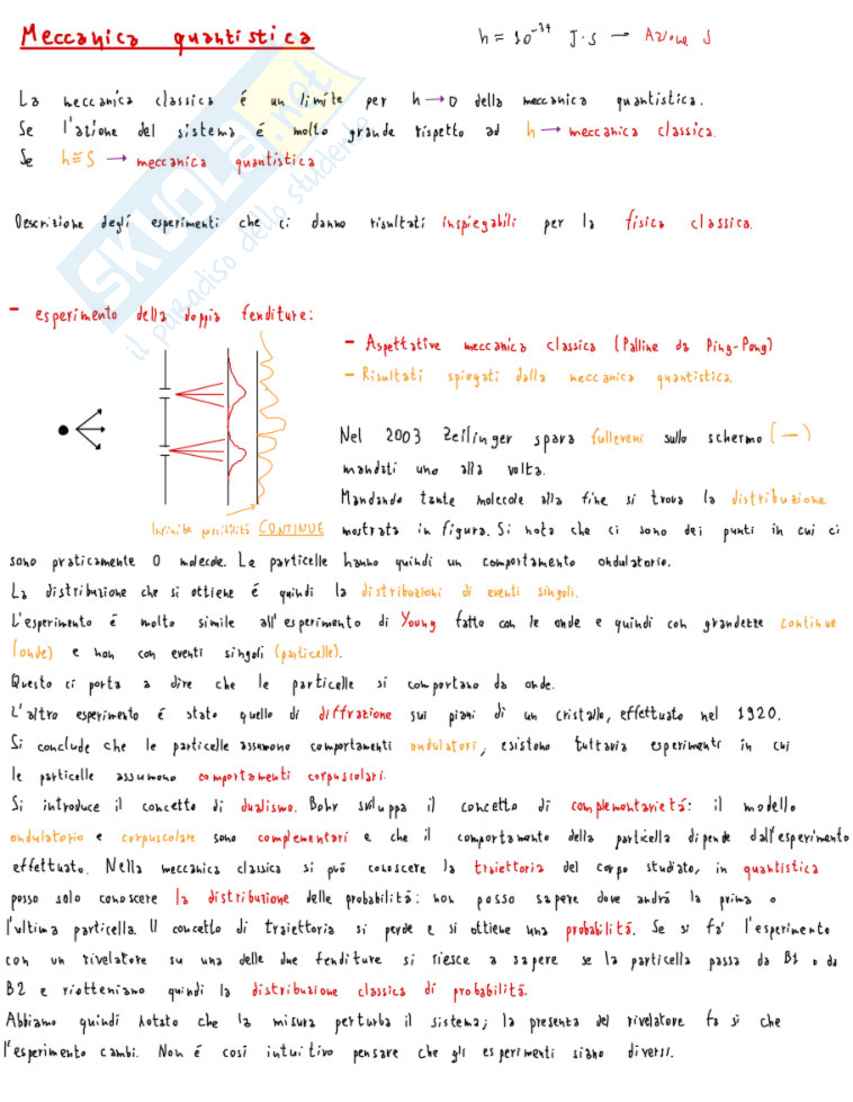 Meccanica quantistica
h = 10⁻³⁴ J·s → Azione S
La meccanica classica é un limite per h → 0 della meccanica quantistica.
Se l'azione del sistema é molto grande rispetto ad h → meccanica classica.
Se h ≅ S → meccanica quantistica
Descrizione degli esperimenti che ci danno risultati inspiegabili per la fisica classica.
SKUOLA.net
il paradiso dello studente
- esperimento della doppia fenditure:
- Aspettative meccanica classica (Palline da Ping-Pong)
- Risultati spiegati dalla meccanica quantistica.
Nel 2003 Zeilinger spara fullereni sullo schermo (—)
mandati uno alla volta.
Mandando tante molecole alla fine si trova la distribuzione
Infinite possibilitá CONTINUE
mostrata in figura. Si nota che ci sono dei punti in cui ci
sono praticamente 0 molecole. Le particelle hanno quindi un comportamento ondulatorio.
La distribuzione che si ottiene é quindi la distribuzioni di eventi singoli.
L'esperimento é molto simile all'esperimento di Young fatto con le onde e quindi con grandezze continue
(onde) e non con eventi singoli (particelle).
Questo ci porta a dire che le particelle si comportano da onde.
L'altro esperimento é stato quello di diffrazione sui piani di un cristallo, effettuato nel 1920.
Si conclude che le particelle assumono comportamenti ondulatori, esistono tuttavia esperimenti in cui
le particelle assumono comportamenti corpuscolari.
Si introduce il concetto di dualismo. Bohr sviluppa il concetto di complementarietá: il modello
ondulatorio e corpuscolare sono complementari e che il comportamento della particella dipende dall'esperimento
effettuato. Nella meccanica classica si puó conoscere la traiettoria del corpo studiato, in quantistica
posso solo conoscere la distribuzione delle probabilitá: non posso sapere dove andrá la prima o
l'ultima particella. Il concetto di traiettoria si perde e si ottiene una probabilitá. Se si fa' l'esperimento
con un rivelatore su una delle due fenditure si riesce a sapere se la particella passa da B1 o da
B2 e riotteniamo quindi la distribuzione classica di probabilitá.
Abbiamo quindi notato che la misura perturba il sistema; la presenza del rivelatore fa si che
l'esperimento cambi. Non é cosí intuitivo pensare che gli esperimenti siano diversi.